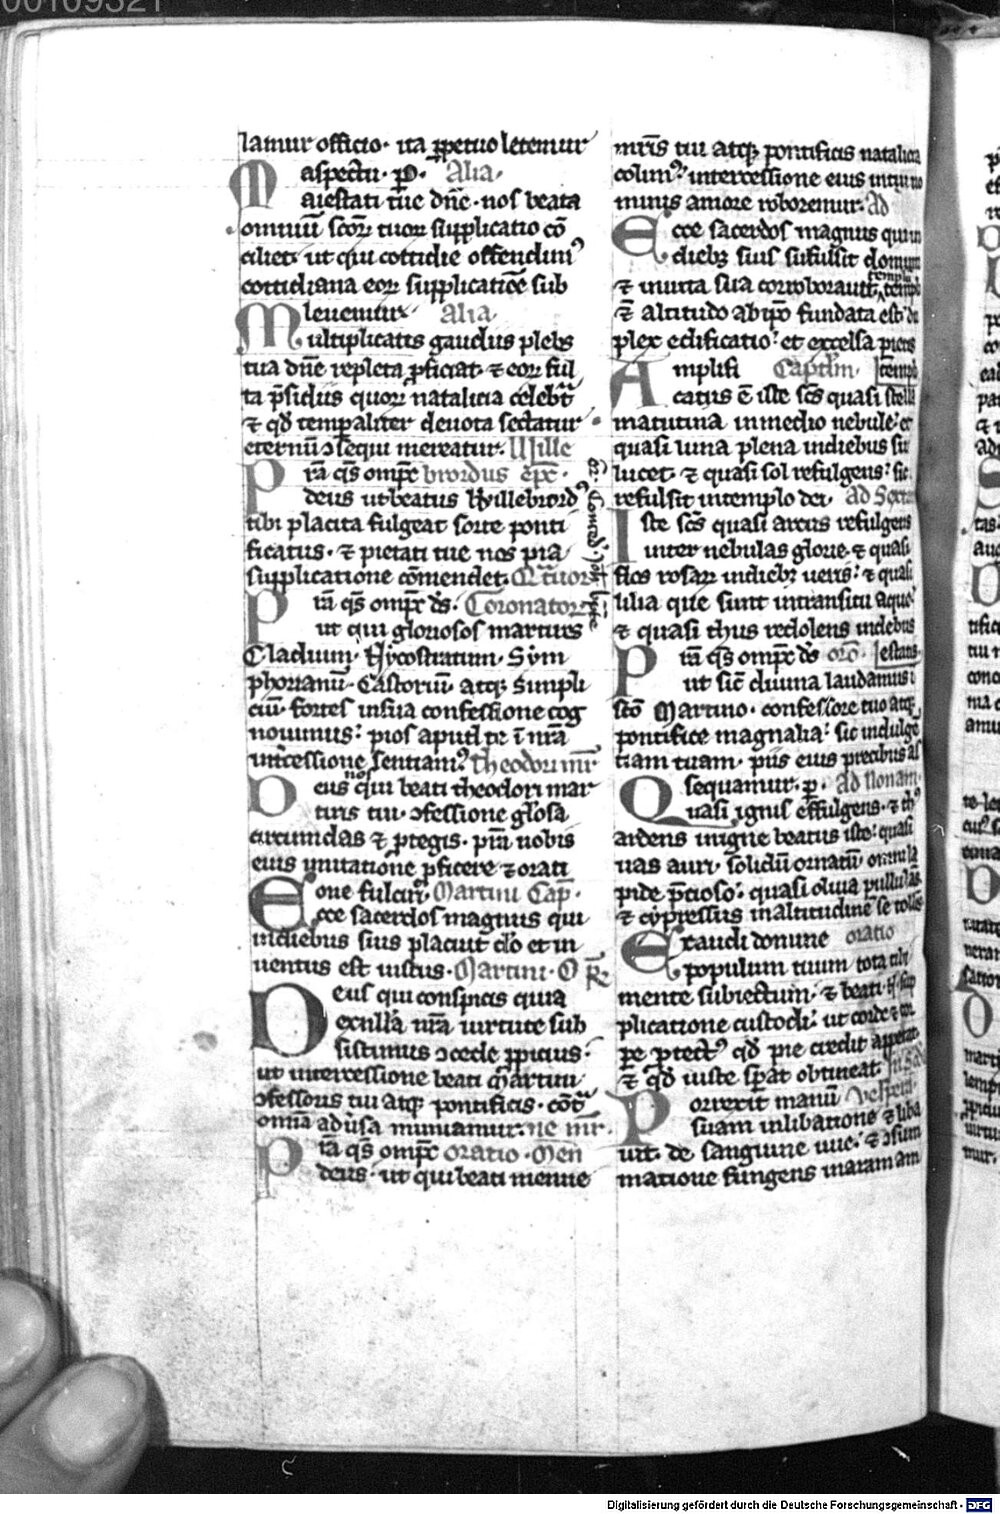 lamur officio· ita ꝑpetuo letemur
aspectu· ꝑ· Alia·
Maiestati tue dn̄e· nos beata
omniū scōꝝ tuoꝝ supplicatio cō
ciliet· ut qui cottidie offendimꝰ
cottidiana eoꝝ supplicatiōe sub
leuemur· Alia
Multiplicatis gaudiis plebs
tua dn̄e repleta ꝓficiat· ⁊ eoꝝ ful
ta p̄sidiis quoꝝ natalicia celebrat
⁊ qd̄ tempaliter deuota sectatur
eternū ↄsequi mereatur· Wille
Pr̄a qs̄ omp̄c brordus ep̄c·
deus ut beatus Willebrordꝰ
tibi placita fulgeat sorte ponti
ficatus· ⁊ pietati tue nos pia
supplicatione cōmendet· Qͣtuor
Pr̄a qs̄ omp̄c ds̄· Coronatorꝝ
ut qui gloriosos martires
Claduum· Nycostratum· Sym
phorianū· Castoriū atqꝫ Simpli
ciū· fortes in sua confessione cog
nouimus· pios aput te ī nr̄a
int̄cessione sentiamꝰ Theodori mr̄
Deus qui nos beati theodori mar
tiris tui· ↄfessione gl̄osa
circumdas ⁊ ꝓtegis· pr̄a nobis
eius imitatiōne ꝓficere ⁊ orati
one fulciri· Martini Cap̄·
Ecce sacerdos magnus qui
in diebus suis placuit d̄o et in
uentus est iustus· Martini· Or̄
Deus qui conspicis quia
ex nulla nr̄a uirtute sub
sistimus ↄcede ꝓpicius·
ut intercessione beati Martini
ↄfessoris tui atqꝫ pontificis· cōtͣ
omnia aduͥsa muniamur· ne mr̄·
Pr̄a qs̄ omp̄c oratio· Men
deus· ut qui beati menne
mr̄is tui atqꝫ pontificis natalicia
colimꝰ· intercessione eius in tui no
minis amore roboremur· Ad
Ecce sacerdos magnus qui in
diebꝫ suis suffulsit domum
⁊ in uita sua corroborauit templū
⁊ altitudo ab ip̄o fundata est du
plex edificatio· et excelsa parietes
Amplifi Capitlm̄· templi
catus ē iste scs̄ quasi stella
matutina in medio nebule· et
quasi luna plena in diebus suis
lucet· ⁊ quasi sol refulgens· sic
refulsit in templo dei· ad Sextam
Iste scs̄ quasi arcus refulgens
inter nebulas glorie· ⁊ quasi
flos rosaꝝ in diebꝫ ueris· ⁊ quasi
lilia que sunt in transitu aque·
⁊ quasi thus redolens in diebus
Pr̄a qs̄ omp̄c ds̄ orō· estatis·
ut sic̄ diuina laudamus ī
scō Martino· confessore tuo atqꝫ
pontifice magnalia· sic indulgē
tiam tuam· piis eius precibus as
sequamur· ꝑ· ad Nonam·
Quasi ignis effulgens· ⁊ thꝰ
ardens in igne beatus iste· quasi
uas auri· solidū ornatū· omni la
pide p̄cioso· quasi oliua pullulās
⁊ cypressus in altitudinē se tollēs
Exaudi domine oratio
populum tuum tota tibi
mente subiectum· ⁊ beati N· sup
plicatione custodi· ut corde ⁊ cor
pe ꝓtectꝰ qd̄ pie credit appetat
⁊ qd̄ iuste sp̄at obtineat·
Porrexit manū Vesperā·
suam in libatione ⁊ liba
uit· de sanguine uue· ⁊ ↄsum
matione fungens in aram am
Digitalisierung gefördert durch die Deutsche Forschungsgemeinschaft - DFG